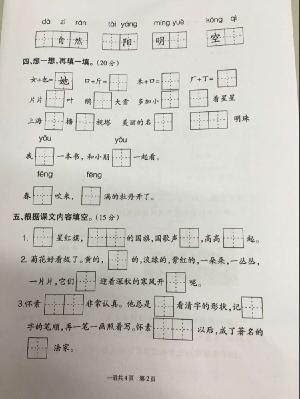 dà zì rán tài yáng míng yuè kōng qì
自然 阳 明 空
四、想一想,再填一填。(20分)
女+也=她 口+斤= 木+口= 广+丁=
片片 叶 鹅 大雪 多加小 看星星
上海 播 视塔 美丽的名 明珠
yǒu yǒu
我 一本书,和小朋 一起看。
fēng fēng
春 吹来, 满的牡丹开了。
五、根据课文内容填空。(15分)
1. 星红旗, 的国旗,国歌声 ,高高 起。
2. 菊花好看极了。黄的, 的,淡绿的,紫红的,一朵朵,一丛丛,
一片片,它们 迎着深秋的寒风开 呢。
3.怀素 非常认真。他总是 看清字的形状,记
字的笔顺,再一笔一画照着写。怀素 以后,成了著名的
法家。
一语共4页 第2页